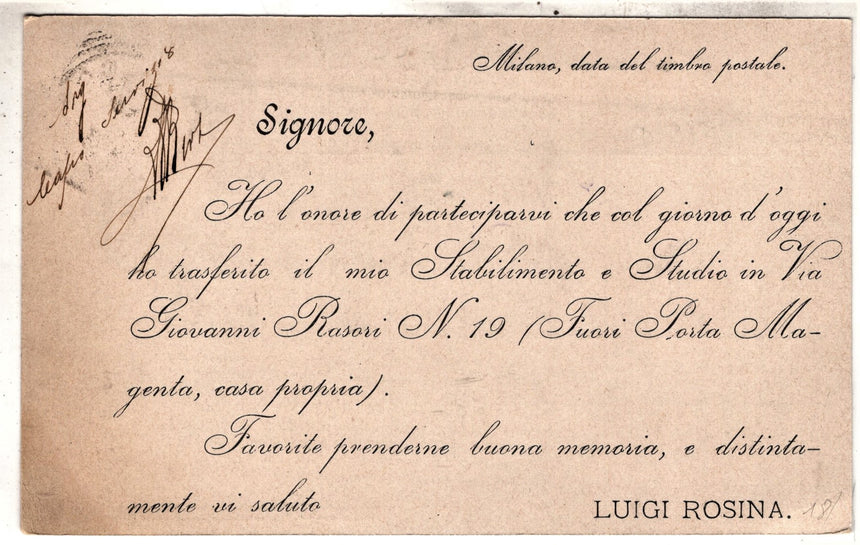 Milano, data del timbro postale.
Signore,
Ho l'onore di parteciparvi che col giorno d'oggi
ho trasferito il mio Stabilimento e Studio in Via
Giovanni Rasori N. 19 (Fuori Porta Ma-
genta, casa propria).
Favorite prenderne buona memoria, e distinta-
mente vi saluto
LUIGI ROSINA.